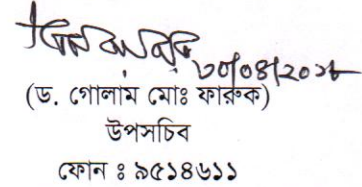 ৩০/০৪/২০১৮
(ড. গোলাম মোঃ ফারুক)
উপসচিব
ফোন ঃ ৯৫১৪৬১১